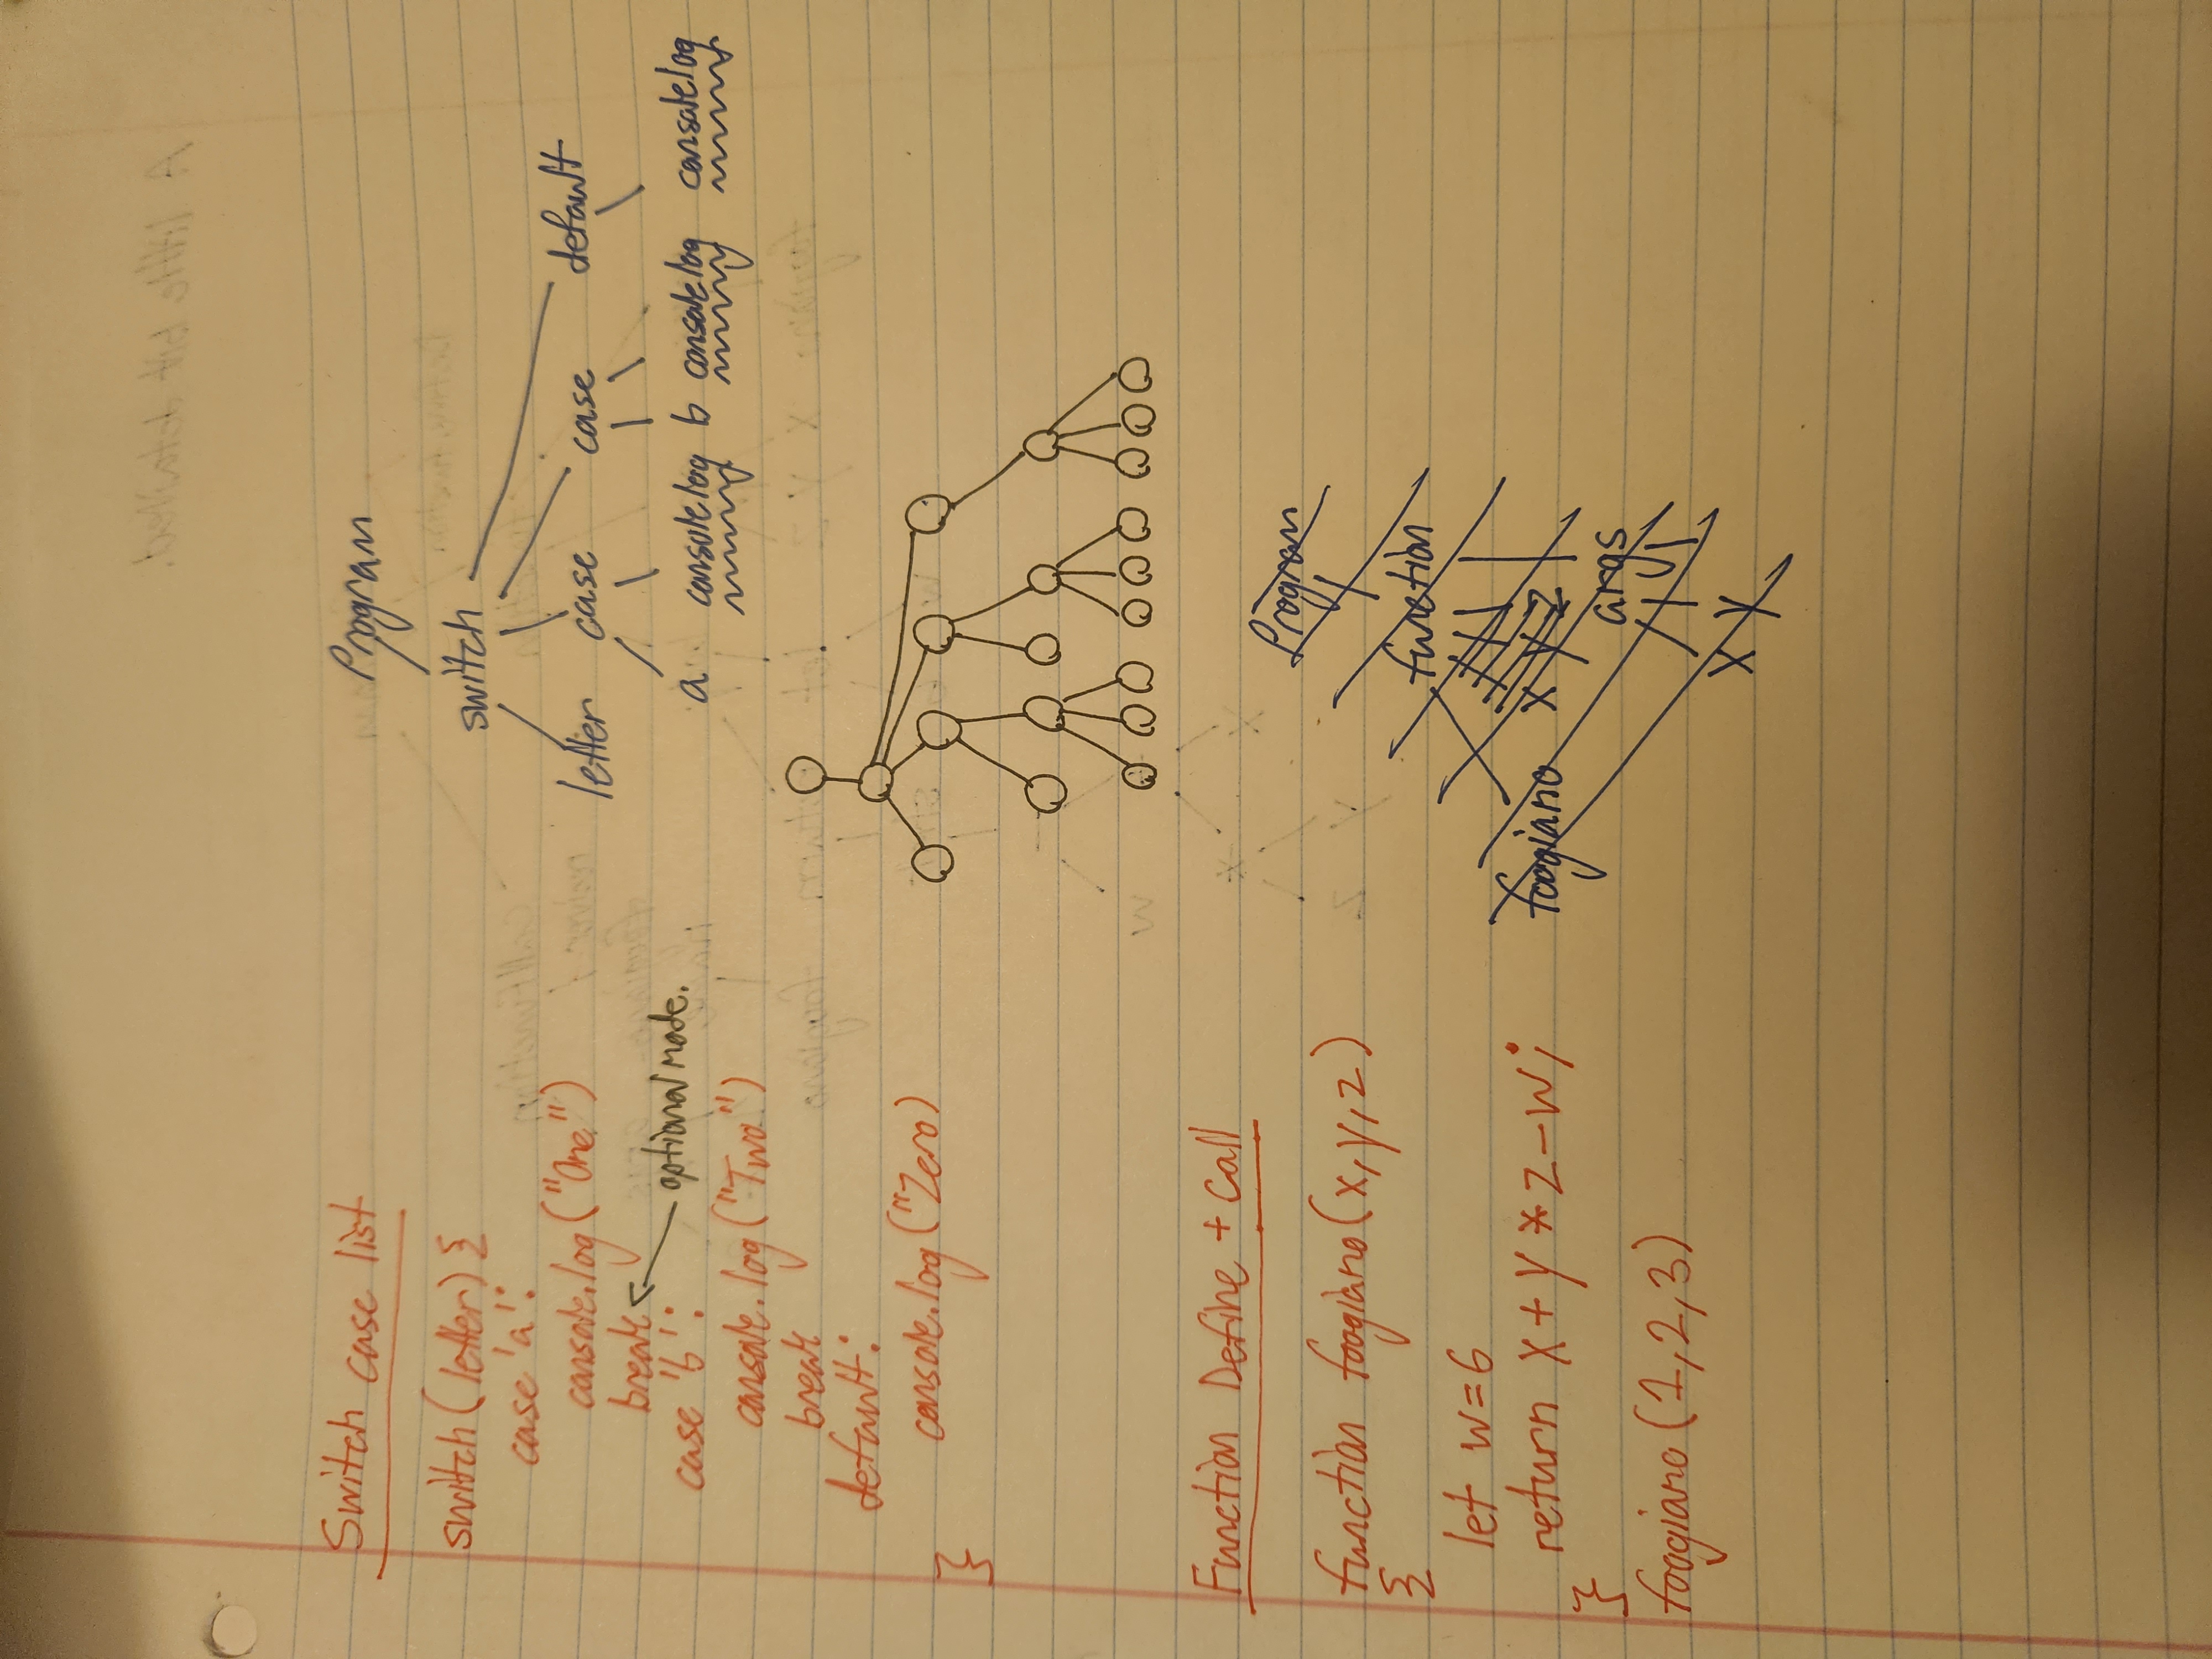 Switch case list
switch(letter){
case 'a':
console.log("One")
break
optional node.
case 'b':
console.log("Two")
break
default:
console.log("Zero)
}
Program
switch
letter case case default
a console.log b console.log console.log
Function Define + Call
function foogiano(x,y,z)
{
let w=6
return x+y*z-w;
}
foogiano(1,2,3)
Program
function
x z
foogiano args
x y